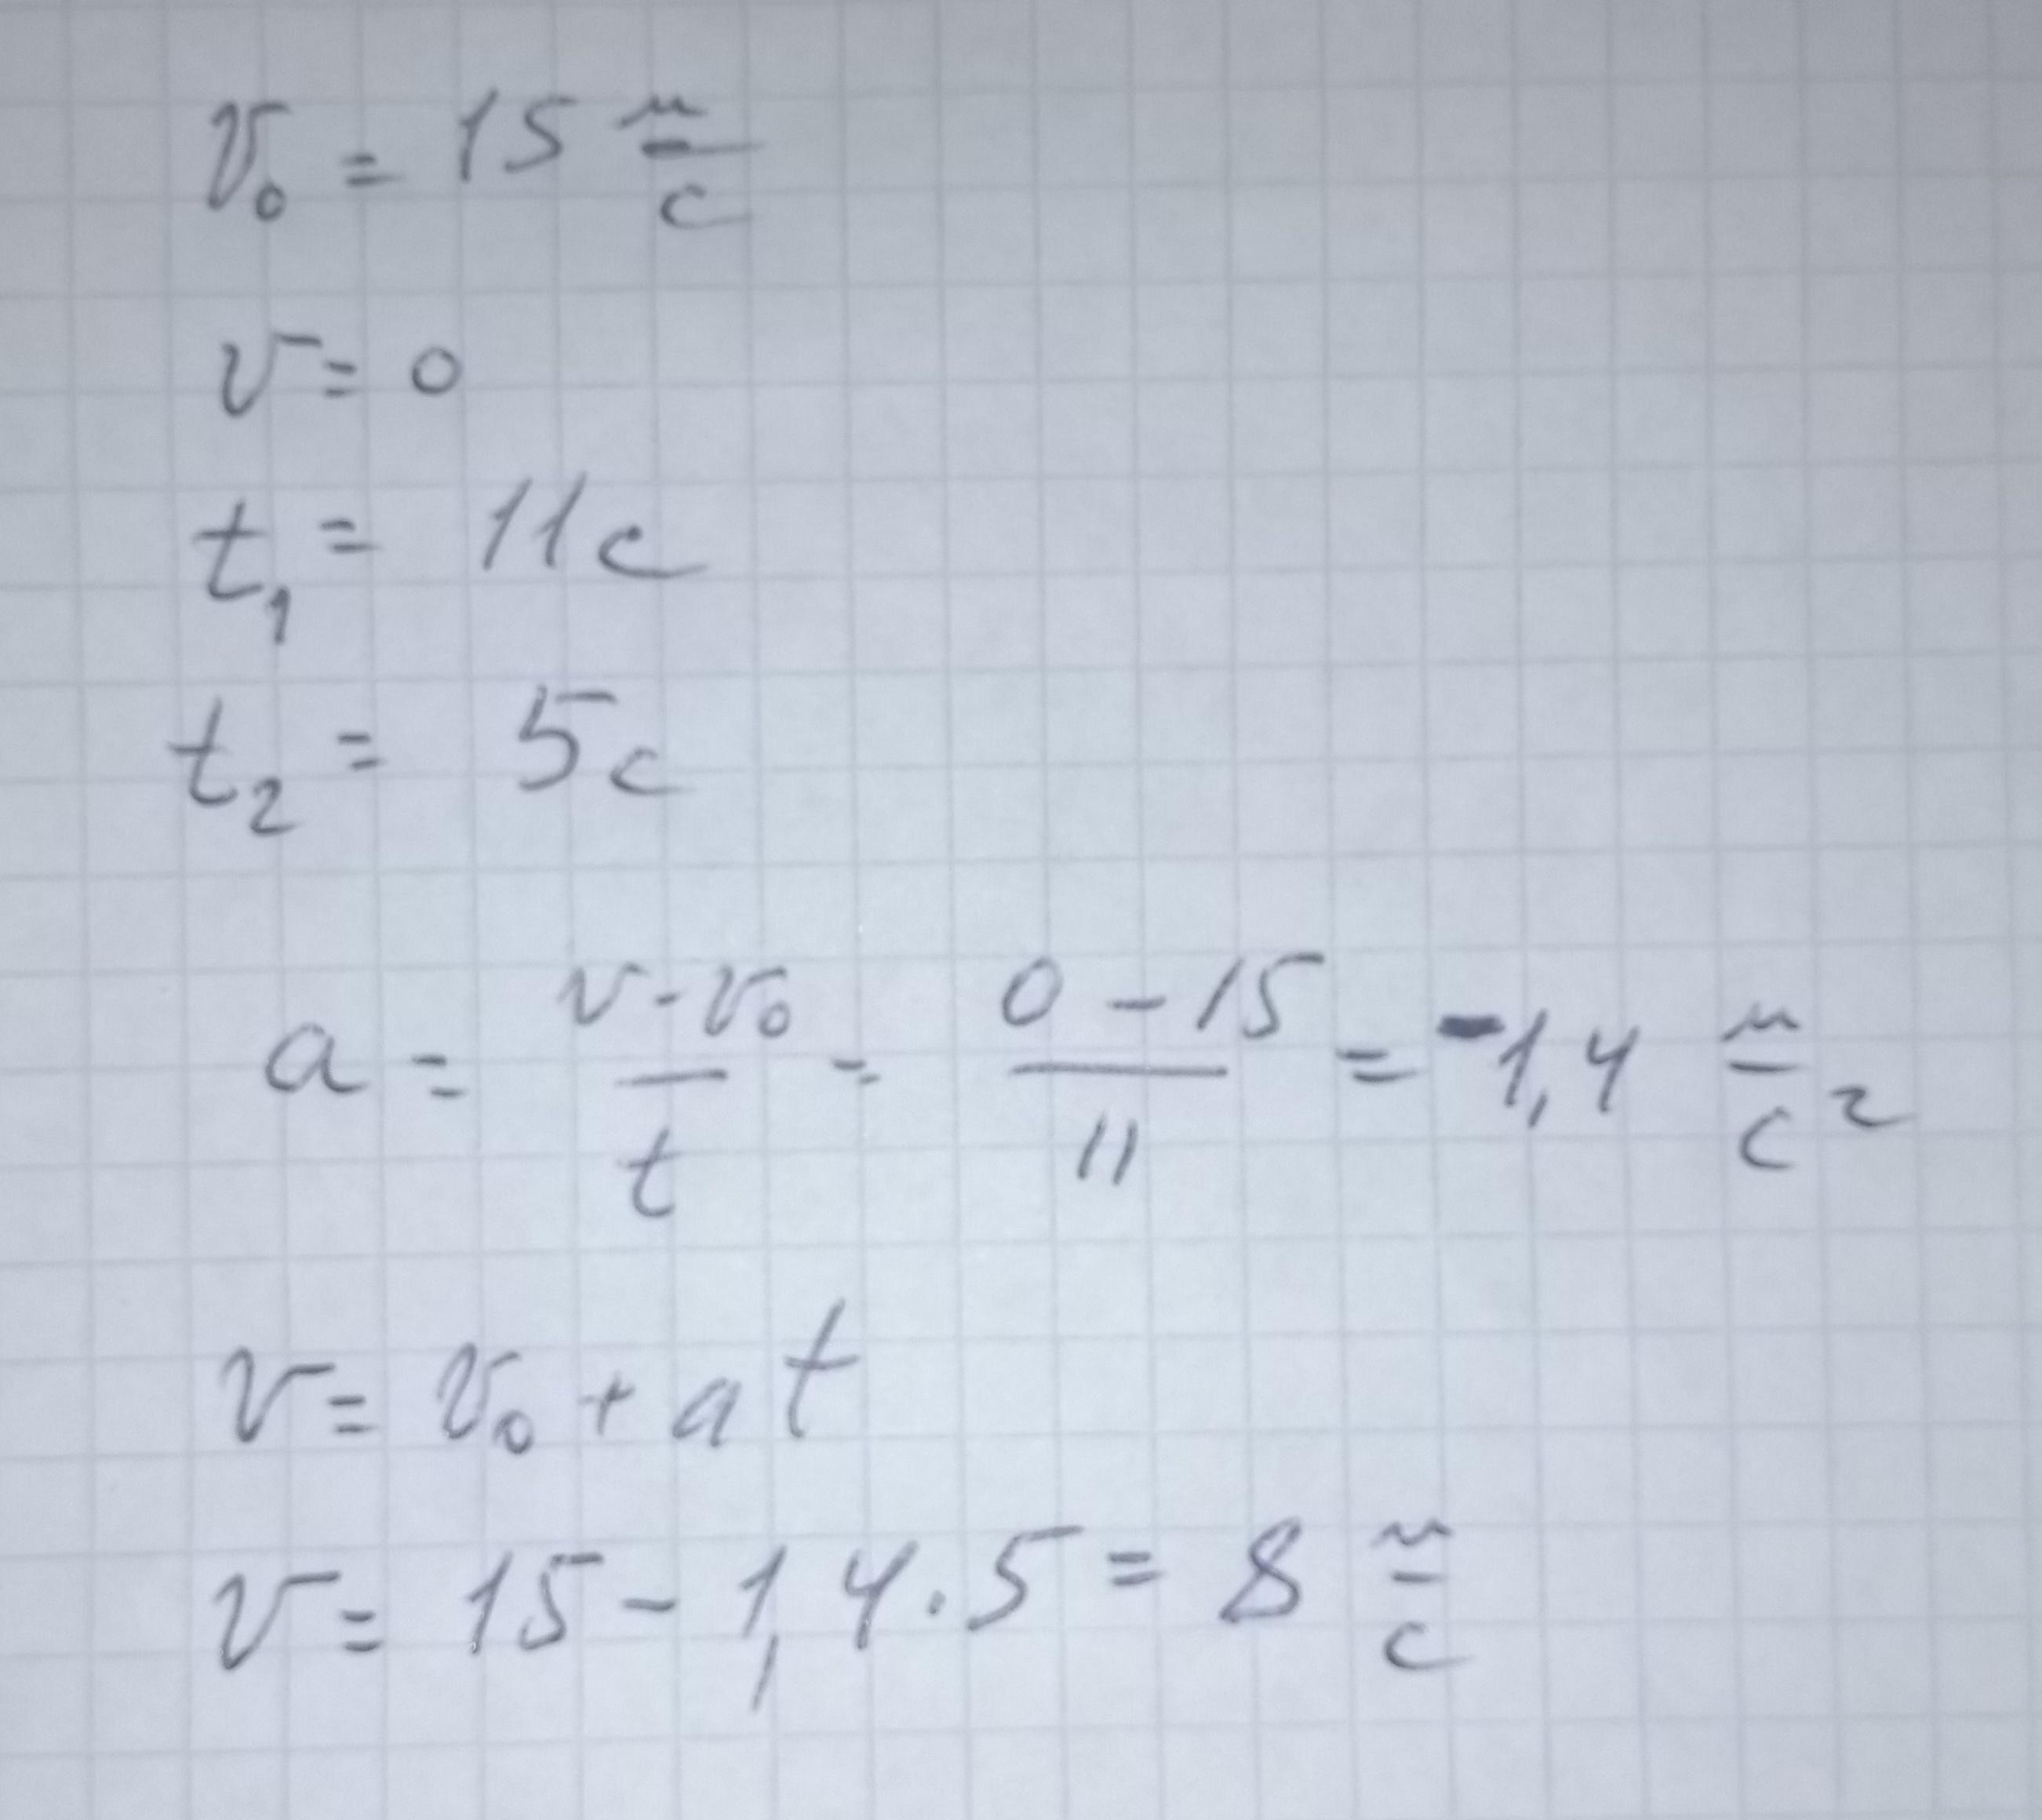 v₀ = 15 м/с
v = 0
t₁ = 11 с
t₂ = 5 с
a = (v - v₀)/t = (0 - 15)/11 = -1,4 м/с²
v = v₀ + at
v = 15 - 1,4 · 5 = 8 м/с